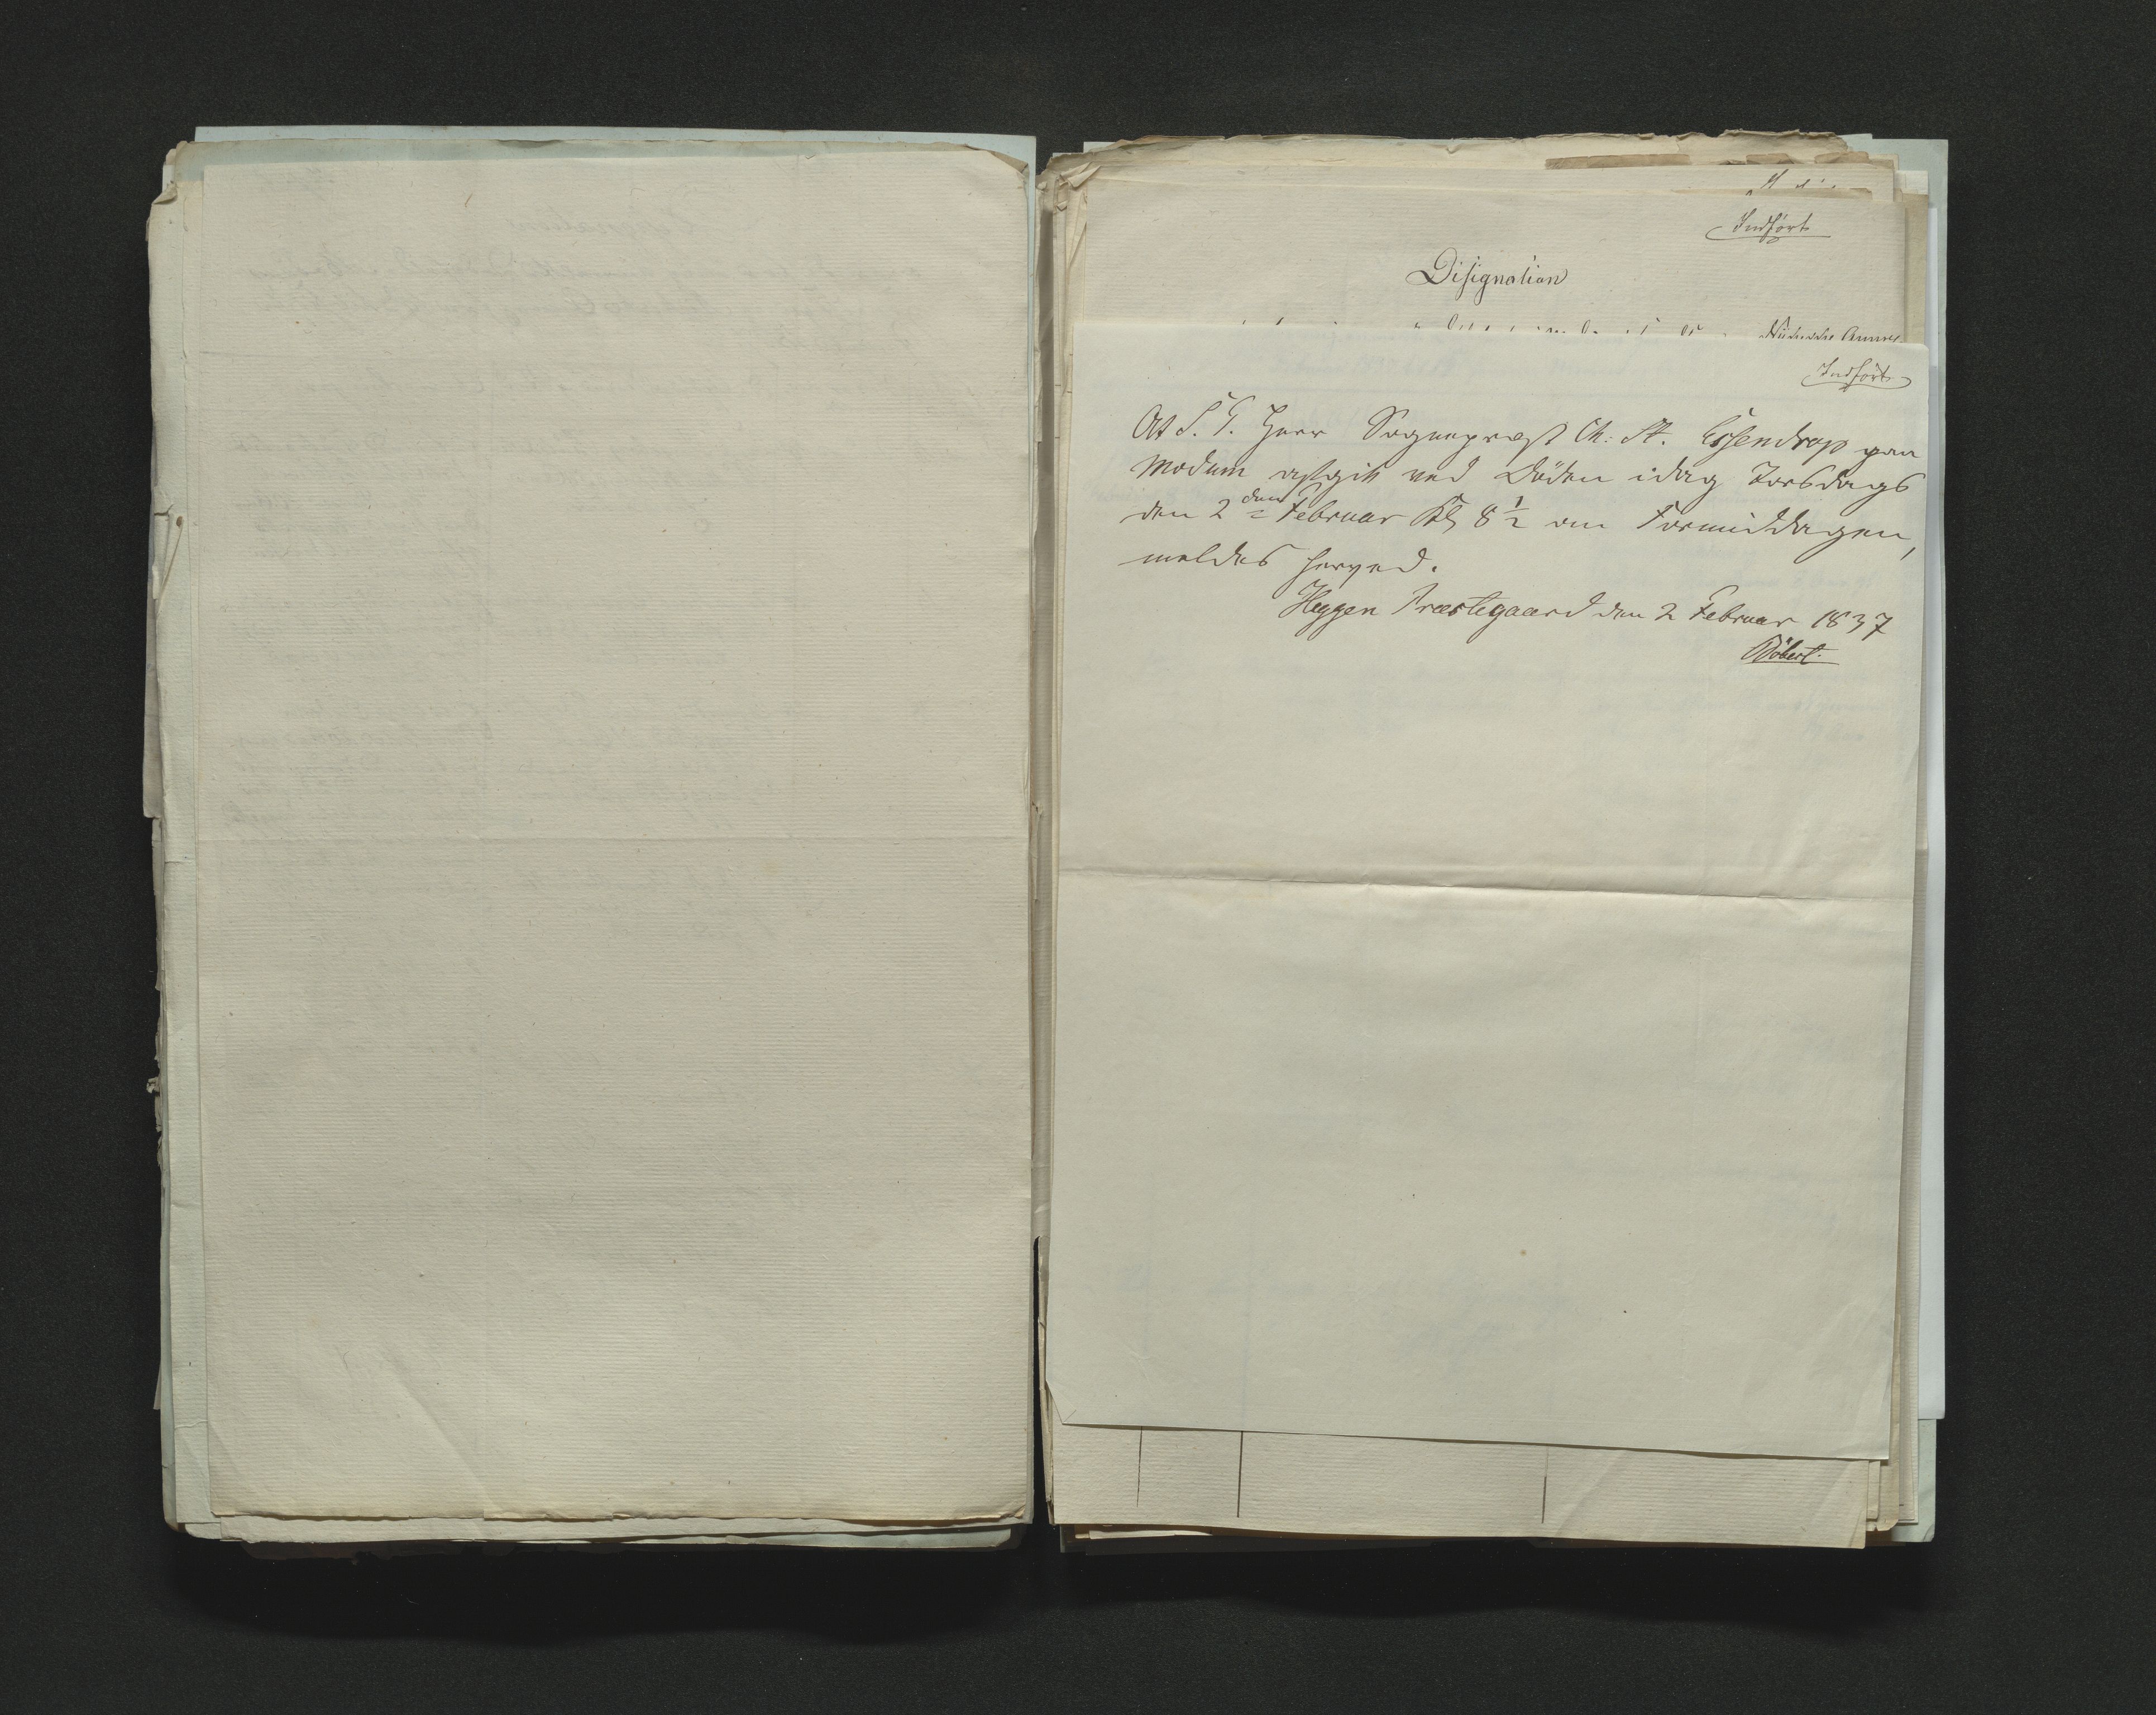 Indført
Disignation
Indført
At S. T. Herr Sogneprest Ch: St. Essendrop paa
Modum afgik ved Döden idag Torsdags
den 2den Februar Kl 8 1/2 om Formiddagen,
meldes herved.
Heggen Præstegaard den 2 Februar 1837
Döbert.